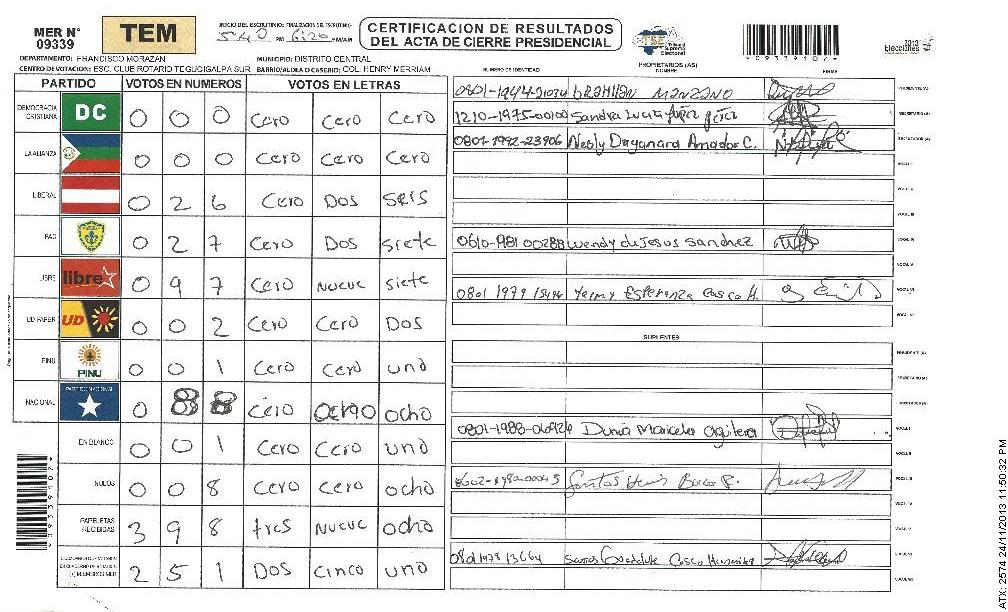 MER N° 09339
TEM
INICIO DEL ESCRUTINIO: FINALIZACION DEL ESCRUTINIO
540 PM 6:20 M/AM
CERTIFICACION DE RESULTADOS
DEL ACTA DE CIERRE PRESIDENCIAL
TSE Tribunal Supremo Electoral
2013 Elecciones
*09339107*
DEPARTAMENTO: FRANCISCO MORAZAN MUNICIPIO: DISTRITO CENTRAL
CENTRO DE VOTACION: ESC. CLUB ROTARIO TEGUCIGALPA SUR BARRIO/ALDEA O CASERIO: COL. HENRY MERRIAM
NUMERO DE IDENTIDAD PROPIETARIOS (AS) NOMBRE FIRMA
PARTIDO VOTOS EN NUMEROS VOTOS EN LETRAS
DEMOCRACIA CRISTIANA DC 0 0 0 Cero Cero Cero
LA ALIANZA 0 0 0 Cero Cero Cero
LIBERAL 0 2 6 Cero Dos seis
PAC 0 2 7 Cero Dos siete
LIBRE libre 0 9 7 Cero Nueve siete
UD FAPER UD 0 0 2 Cero Cero Dos
PINU PINU 0 0 1 Cero Cero uno
NACIONAL PARTIDO NACIONAL 0 8 8 Cero ocho ocho
EN BLANCO 0 0 1 Cero Cero uno
NULOS 0 0 8 Cero Cero ocho
PAPELETAS RECIBIDAS 3 9 8 tres Nueve ocho
(+) MIEMBROS MER 2 5 1 Dos Cinco uno
MANZANO PRESIDENTE (A)
1210-1975-00100 Sandra Lucia SECRETARIO (A)
0801-1992-23906 Nesly Dayanara Amador C. ESCRUTADOR (A)
VOCAL I
VOCAL II
VOCAL III
Wendy deJesus Sanchez VOCAL IV
VOCAL V
0801 1979 Esperanza Cosco H. VOCAL VI
VOCAL VII
SUPLENTES
PRESIDENTE (A)
SECRETARIO (A)
ESCRUTADOR (A)
Dunia Maricela Aguilera VOCAL I
VOCAL II
Santos VOCAL III
VOCAL IV
VOCAL V
0801 1978 13664 Cosco VOCAL VI
VOCAL VII
*09339107*
ATX: 2574 24/11/2013 11:59:32 PM